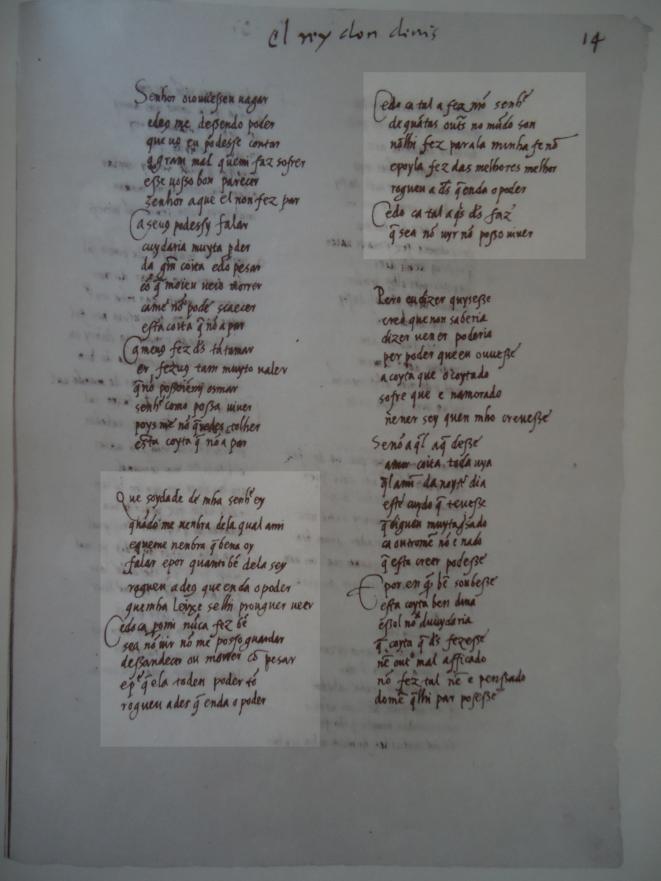 el rey don denis
14
Senhor oiouuessen uagar
edeus me dessendo poder
que uo eu podesse contar
q̄ gram mal quemi faz sofrer
esse uosso bon parecer
senhor a que el non fez par
Ca seuꝯ podessy falar
cuydaria muyta pder
da grā coita edo pesar
cō q̄ moieu ueio morrer
came nō pode scaecer
esta coita q̄ nō a par
Ca meuꝯ fez ds̄ tātamar
er fezuꝯ tam muyto ualer
q̄ nō possoiemj osmar
senhr como possa uiuer
poys me nō queredes tolher
esta coyta q̄ nō a par
Que soydade de mha senhr ey
quādo me nenbra dela qual a mi
e queme nenbra q̄ bena oy
falar epor quanti bē dela sey
rogueu a deꝯ que end a o poder
quemha leixe selhi prouguer ueer
Cedo ca pomi nūca fez bē
sea nō uir nō me posso guardar
dessandecer ou morrer cō pesar
ep' q̄ ela toden poder tē
rogueu a des q̄ enda o poder
Cedo ca tal a fez nro senhr
de quātas outs no mūdo son
nōlhi fez parala minha fe nō
epoyla fez das melhores melhor
rogueu a ds̄ q̄ enda o poder
Cedo ca tal a qs ds̄ faz
q̄ sea nō uyr nō posso uiuer
Pero eu dizer quysesse
creo que non saberia
dizer nen er poderia
per poder que eu ouuesse
a coyta que o coytado
sofre que e namorado
nē ner sey quen mho creuesse
Senō aql̄ a q̄ desse
amor coita toda uya
ql̄ ami da noyte dia
este cuydo q̄ teuesse
q̄ diguen muytagsado
ca outrome nō e nado
q̄ esta creer podesse
E por en q̄ bē soubesse
esta coyta ben diria
e sol nō duuydaria
q̄ coyta q̄ ds̄ fezesse
nē out mal afficado
nō fez tal nē e penssado
domē q̄lhi par posesse